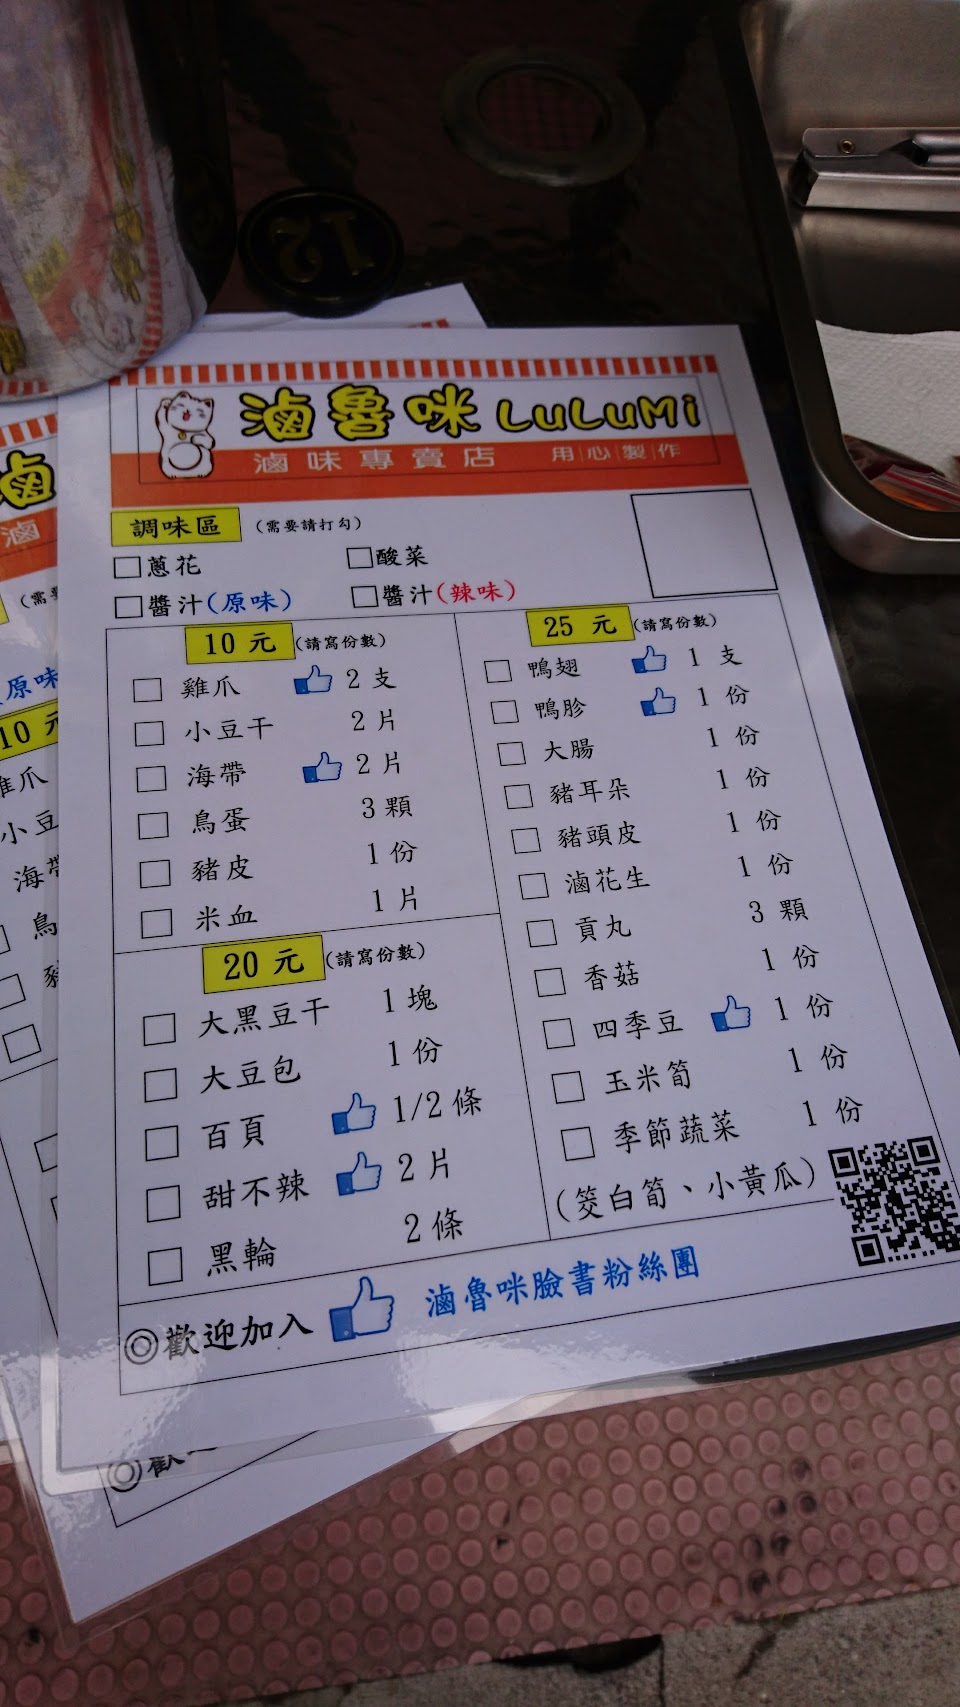 滷魯咪 LULUMi
滷味專賣店 用心製作
調味區 (需要請打勾)
□蔥花 □酸菜
□醬汁(原味) □醬汁(辣味)
10 元 (請寫份數)
□ 雞爪 2 支
□ 小豆干 2 片
□ 海帶 2 片
□ 鳥蛋 3 顆
□ 豬皮 1 份
□ 米血 1 片
20 元 (請寫份數)
□ 大黑豆干 1 塊
□ 大豆包 1 份
□ 百頁 1/2 條
□ 甜不辣 2 片
□ 黑輪 2 條
25 元 (請寫份數)
□ 鴨翅 1 支
□ 鴨胗 1 份
□ 大腸 1 份
□ 豬耳朵 1 份
□ 豬頭皮 1 份
□ 滷花生 1 份
□ 貢丸 3 顆
□ 香菇 1 份
□ 四季豆 1 份
□ 玉米筍 1 份
□ 季節蔬菜 1 份
(筊白筍、小黃瓜)
◎歡迎加入 滷魯咪臉書粉絲團
12
滷
滷
(需
原味
10 元
雞爪
小豆
海帶
鳥
◎歡